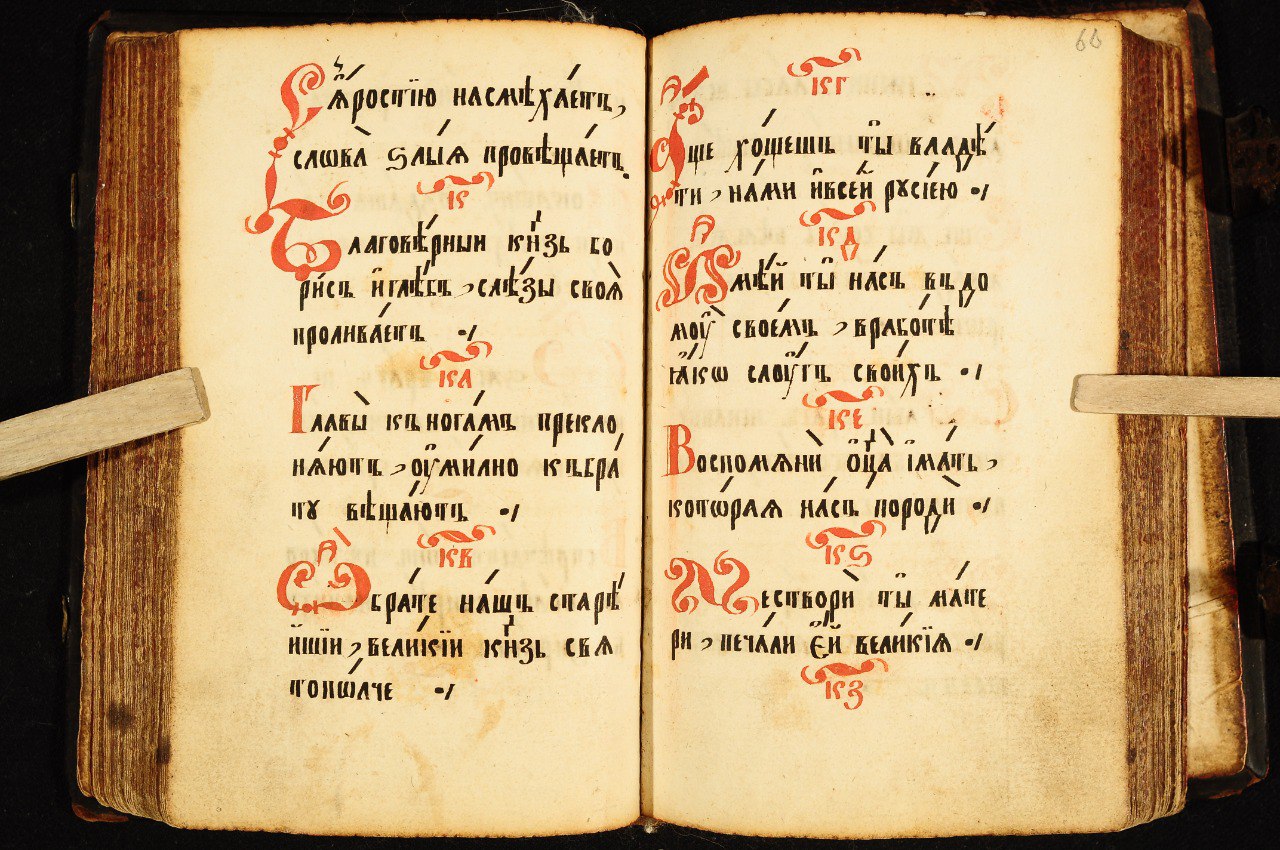 Съ ꙗ҆́ростїю насмѣха́етъ,
слова̀ ѕлы́ѧ провѣща́етъ.
к҃
Благовѣ́рныи кн҃зь бо
ри́съ и҆глѣ́бъ, слѣ́зы своѧ̀
пролива́етъ ·/
к҃а
Главы̀ къ нога́мъ прекло
нѧ́ютъ, ᲂу҆ми́лно къ бра́
ту вѣща́ютъ ·/
к҃в
Ѽ бра́те на́шъ старѣ́
йшїи, вели́кїи кн҃зь свѧ
топѡ́лче ·/
66
к҃г
А҆́ще хо́щешъ ты̀ владѣ́
ти, на́ми и҆ все́й рꙋсі́ею ·/
к҃д
И҆мѣ́й ты̀ на́съ въ до
мᲂу̀ свое́мъ, в рабо́тѣ
ꙗ҆́кѡ слᲂу́гъ свои́хъ ·/
к҃е
Воспомѧнѝ ѻ҆ц҃а̀ і҆ ма́ть,
кото́раѧ на́съ породѝ ·/
к҃ѕ
Не створѝ ты̀ ма́те
ри, печа́ли є҆́й вели́кїѧ ·/
к҃з